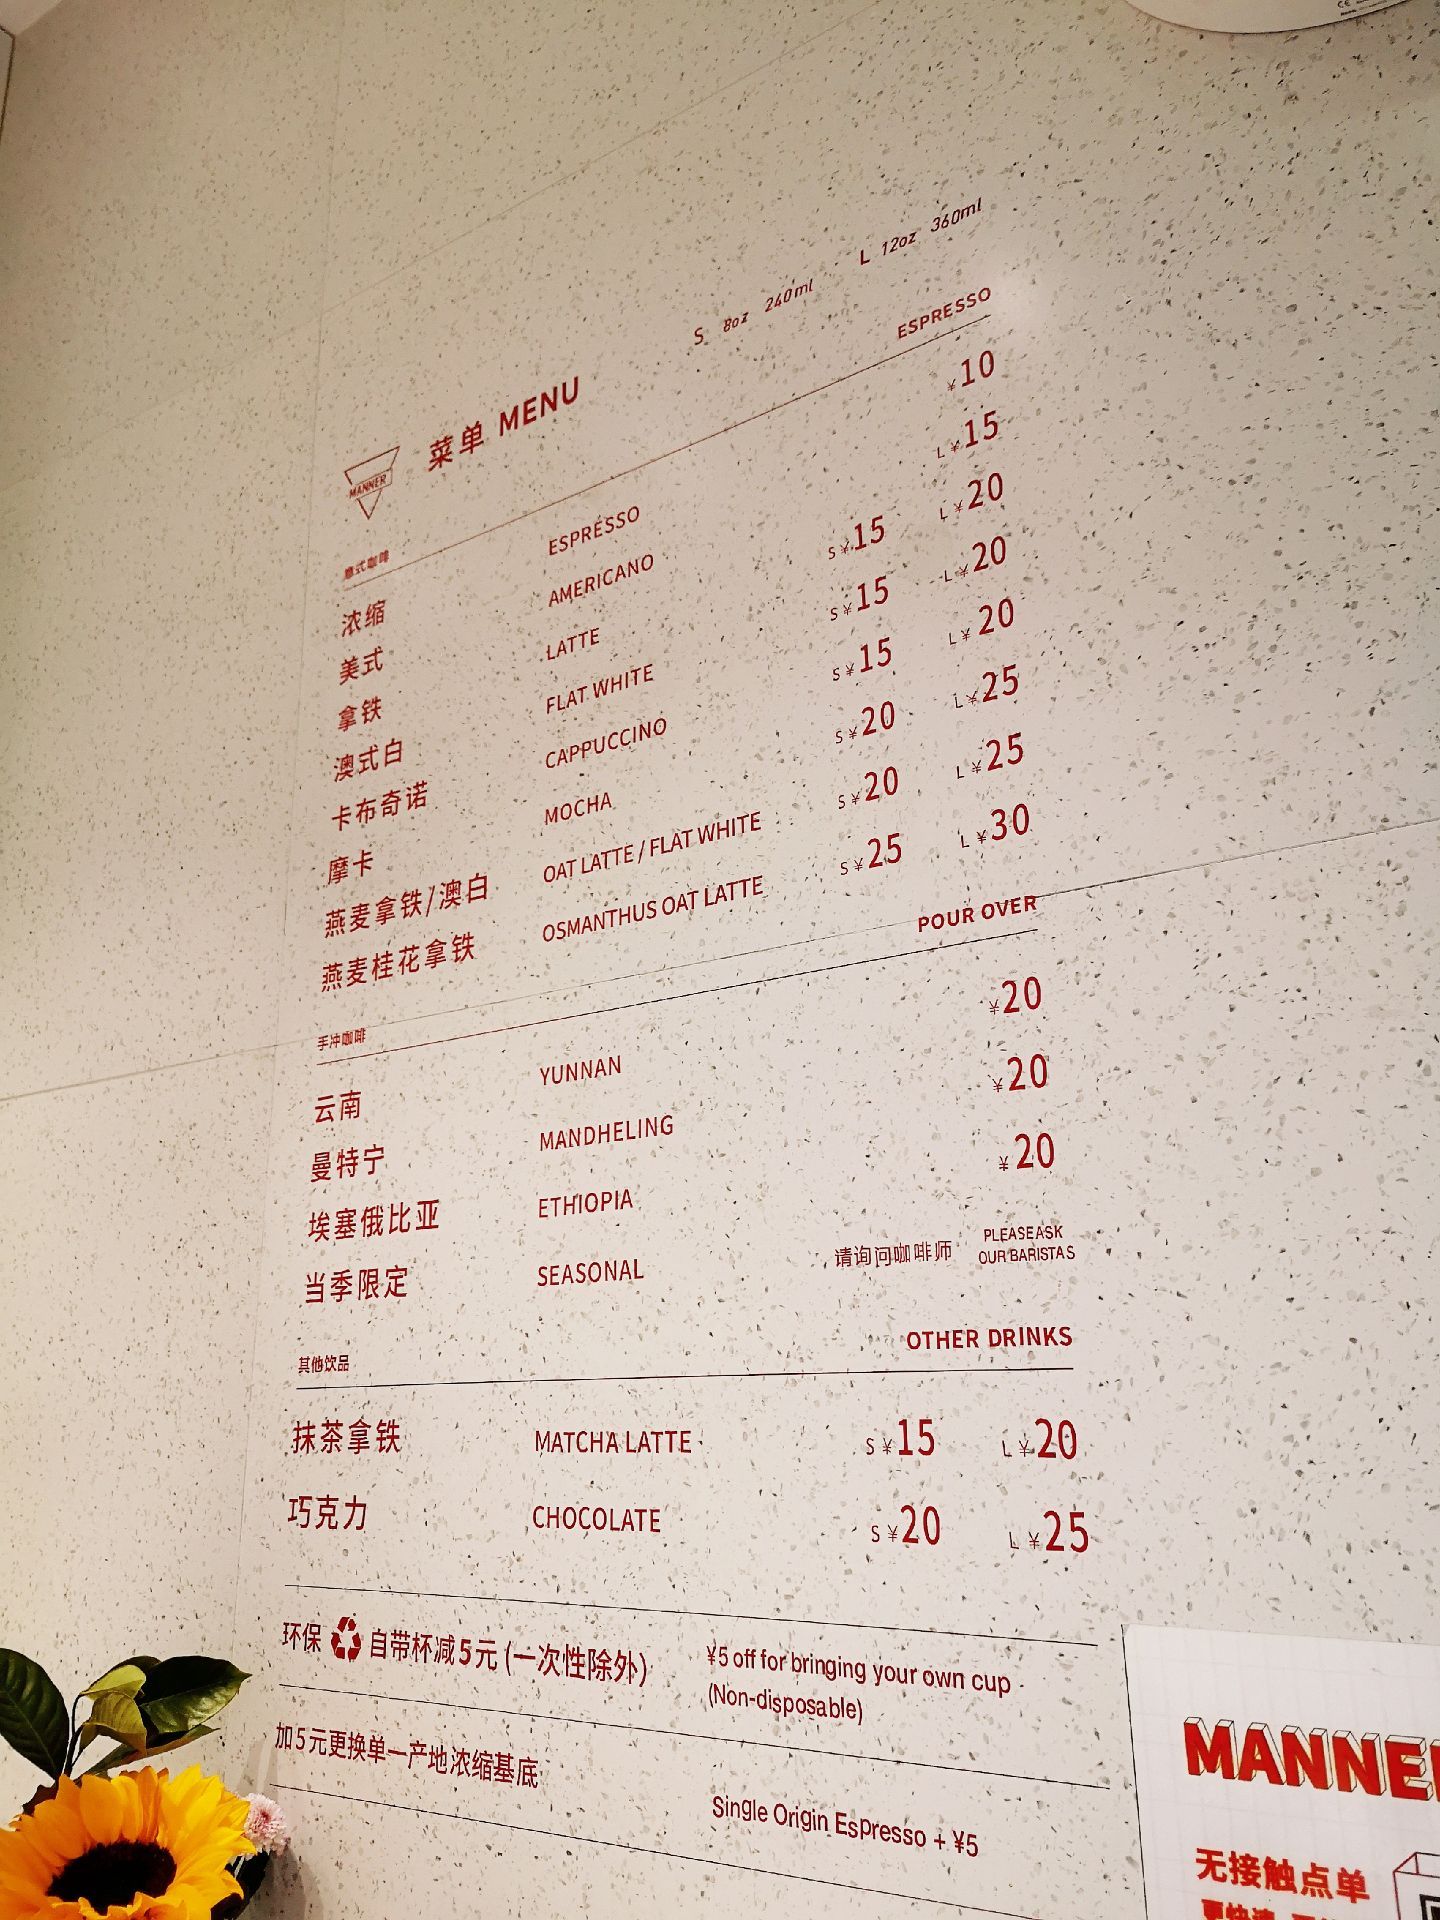 S 8oz 240ml L 12oz 360ml
MANNER 菜单 MENU
意式咖啡 ESPRESSO
浓缩 ESPRESSO ¥10
美式 AMERICANO L ¥15
拿铁 LATTE S ¥15 L ¥20
澳式白 FLAT WHITE S ¥15 L ¥20
卡布奇诺 CAPPUCCINO S ¥15 L ¥20
摩卡 MOCHA S ¥20 L ¥25
燕麦拿铁/澳白 OAT LATTE / FLAT WHITE S ¥20 L ¥25
燕麦桂花拿铁 OSMANTHUS OAT LATTE S ¥25 L ¥30
手冲咖啡 POUR OVER
云南 YUNNAN ¥20
曼特宁 MANDHELING ¥20
埃塞俄比亚 ETHIOPIA ¥20
当季限定 SEASONAL 请询问咖啡师 PLEASE ASK
OUR BARISTAS
其他饮品 OTHER DRINKS
抹茶拿铁 MATCHA LATTE S ¥15 L ¥20
巧克力 CHOCOLATE S ¥20 L ¥25
环保 自带杯减5元 (一次性除外) ¥5 off for bringing your own cup
(Non-disposable)
加5元更换单一产地浓缩基底 Single Origin Espresso + ¥5
MANNE
无接触点单